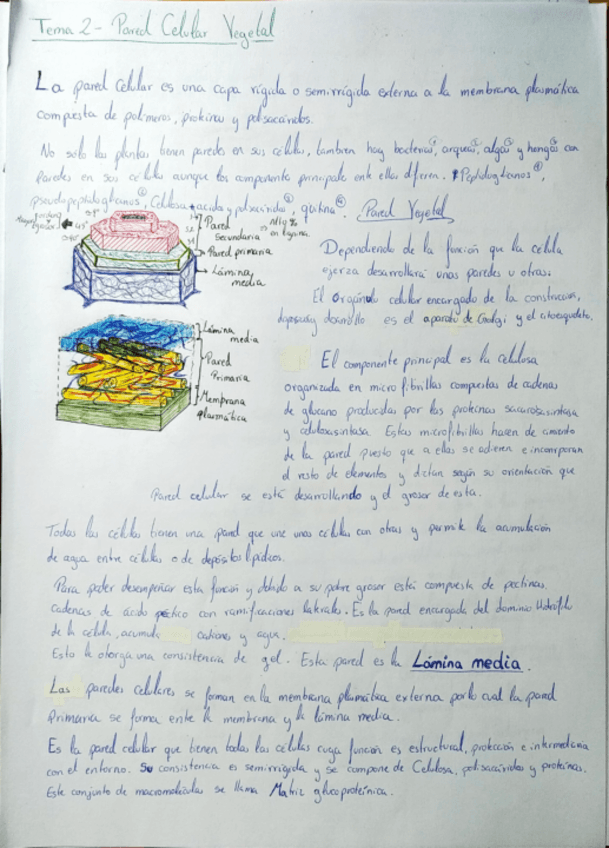 Tema 2 - Pared Celular Vegetal
La pared celular es una capa rígida o semirrígida externa a la membrana plasmática
compuesta de polímeros, proteínas y polisacáridos.
No solo las plantas tienen paredes en sus células, tambien hay bacterias①, arqueas②, algas③ y hongos④ con
paredes en sus células aunque los componente principale ente ellas difieren. Peptidoglicanos①,
pseudopeptidoglicanos②, Celulosa, y polisacáridos③, quitina④. Pared Vegetal
Pared
secundaria
en lignina
Pared primaria
Lámina
media
Dependiendo de la función que la célula
ejerza desarrollará unas paredes u otras.
El orgánulo celular encargado de la construccion,
y desarrollo es el aparato de Goolgi y el citoesqueleto.
Lámina
media
Pared
Primaria
Memprana
plasmática
El componente principal es la celulosa
organizada en microfibrillas compuestas de cadenas
de glucano producidas por las proteinas sacarosasintasa
y celulosasintasa. Estas microfibrillas hacen de cimiento
de la pared puesto que a ellas se adieren e incorporan
el resto de elementos y dictan según su orientación que
Pared celular se está desarrollando y el grosor de esta.
Todas las células tienen una pared que une unas células con otras y permite la acumulación
de agua entre células o de depósitos lipídicos.
Para poder desempeñar esta función y debido a su pobre grosor está compuesta de pectinas,
cadenas de ácido péctico con ramificaciones laterales. Es la pared encargada del dominio Hidrófilo
de la célula, acumula cationes y agua.
Esto le otorga una consistencia de gel. Esta pared es la Lámina media.
Las paredes celulares se forman en la membrana plasmática externa por lo cual la pared
Primaria se forma ente la membrana y la lámina media.
Es la pared celular que tienen todas las células cuya función es estructural, protección e intermediaria
con el entorno. Su consistencia es semirrígida y se compone de Celulosa, polisacáridos y proteínas.
Este conjunto de macromoléculas se llama Matriz glucoproteínica.